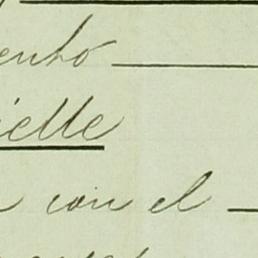 ento
ielle
con el